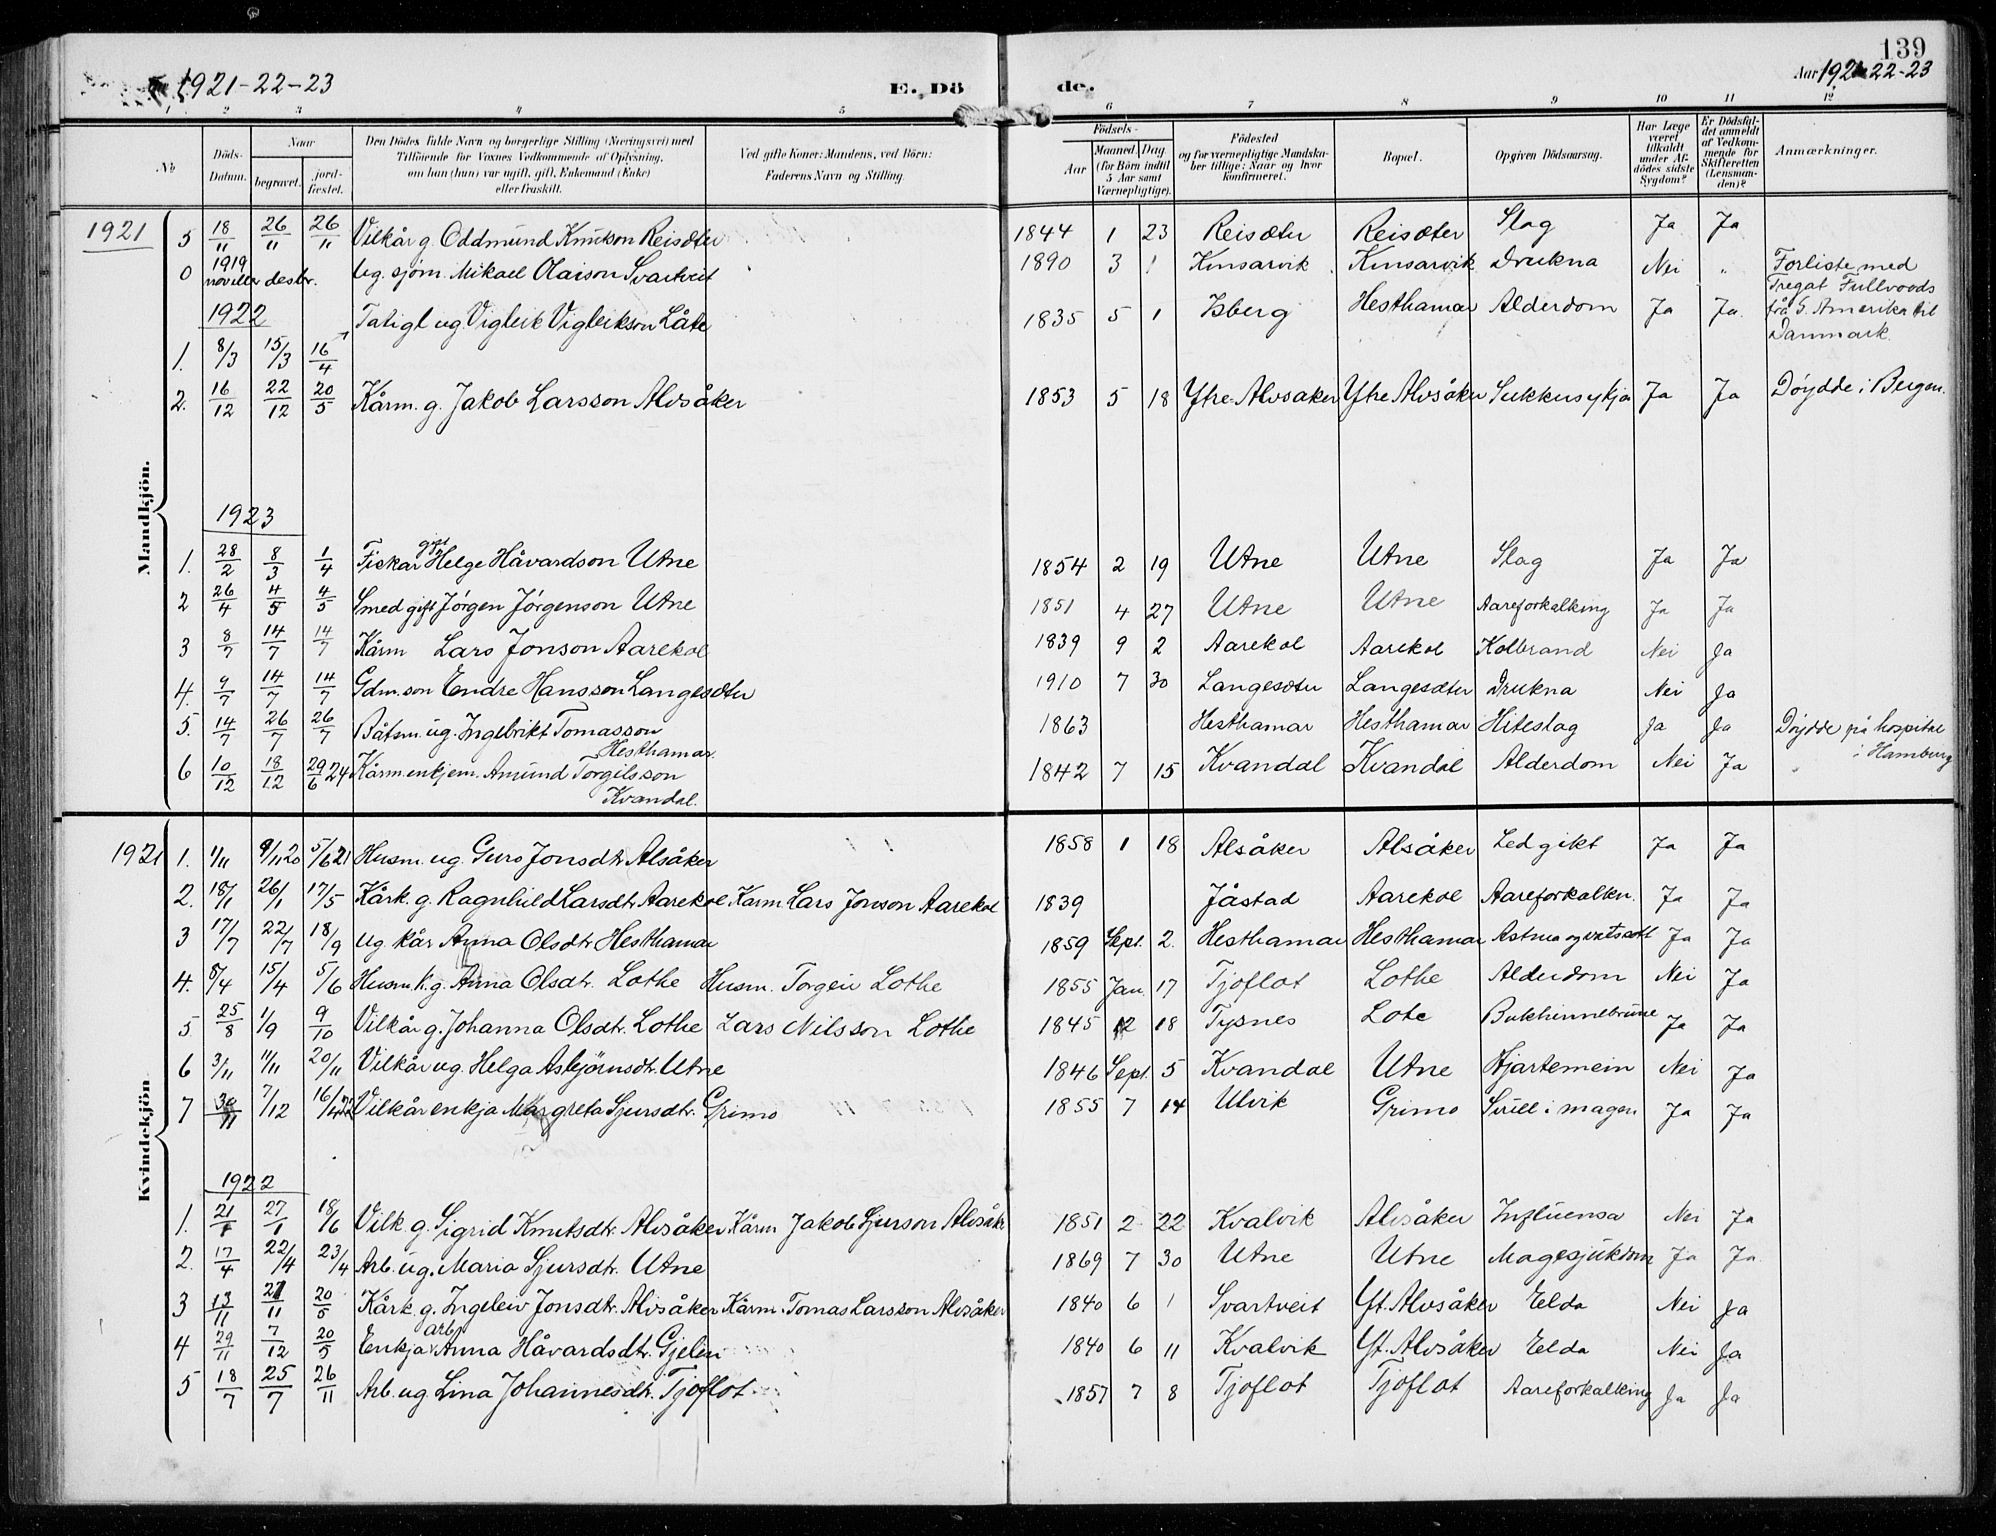 1921-22-23
E. Dö
de.
139
Aar 1921-22-23
1 2 3 4 5 6 7 8 9 10 11 12
No
Döds-Datum.
Naar
begravet.
jord-fæstet.
Den Dödes fulde Navn og borgerlige Stilling (Næringsvei) med
Tilföiende for Voxnes Vedkommende af Oplysning,
om han (hun) var ugift, gift, Enkemand (Enke)
eller fraskilt.
Ved gifte Koner: Mandens, ved Börn:
Faderens Navn og Stilling.
Födsels-
Aar
Maaned Dag
(for Börn indtil
5 Aar samt
Værnepligtige).
Födested
og for værnepligtige Mandska-
ber tillige: Naar og hvor
konfirmeret.
Bopæl.
Opgiven Dödsaarsag.
Har Læge
været
tilkaldt
under Af-
dödes sidste
Sygdom?
Er Dödsfal-
det anmeldt
af Vedkom-
mende for
Skifteretten
(Lensman-
den)?
Anmærkninger.
Mandkjön.
1921 5 18/11 26/11 26/11 Vilkår g. Oddmund Knutson Reisæter 1844 1 23 Reisæter Reisæter Slag Ja Ja
0 1919 nov eller desbr. Ug. sjøm. Mikael Olaison Svartveit 1890 3 1 Kinsarvik Kinsarvik Drukna Nei " Forliste med
Fregat Fullvoods
frå S. Amerika til
Danmark.
1922 Fatigl ug Vigleik Vigleikson Låte 1835 5 1 Isberg Hesthamar Alderdom Ja Ja
1. 8/3 15/3 16/4
2. 16/12 22/12 20/5 Kårm. g. Jakob Larsson Alvsåker 1853 5 18 Ytre Alvsaker Ytre Alvsåker Sukkersykja Ja Ja Døydde i Bergen.
1923
1. 28/2 8/3 1/4 Fiskar gift Helge Håvardson Utne 1854 2 19 Utne Utne Slag Ja Ja
2 26/4 4/5 4/5 Smed gift Jørgen Jørgenson Utne 1851 4 27 Utne Utne Aareforkalking Ja Ja
3 8/7 14/7 14/7 Kårm Lars Jonson Aarekol 1839 9 2 Aarekol Aarekol Kolbrand Nei Ja
4. 9/7 14/7 14/7 Gdm.son Endre Hansson Langesæter 1910 7 30 Langesæter Langesæter Drukna Nei Ja
5. 14/7 26/7 26/7 Båtsm. ug. Ingebrikt Tomasson
Hesthamar. 1863 Hesthamar Hesthamar Hiteslag Ja Ja Døydde på hospital
i Hamburg
6 10/12 18/12 29/6 24 Kårm. enkjem. Amund Torgilsson
Kvandal. 1842 7 15 Kvandal Kvandal Alderdom Nei Ja
Kvindekjön
1921 1. 1/11 9/11 20 5/6 21 Husm. ug. Guro Jonsdtr Alsåker 1858 1 18 Alsåker Alsåker Led gikt Ja Ja
2. 18/1 26/1 17/5 Kårk. g. Ragnhild Larsdtr Aarekol Karm. Lars Jonson Aarekol 1839 Jåstad Aarekol Aareforkalkn. Ja Ja
3 17/7 22/7 18/9 ug. kår Anna Olsdtr Hesthamar 1859 Sept. 2. Hesthamar Hesthamar Astma og vatssott Ja Ja
4. 8/4 15/4 5/6 Husm.k. g. Anna Olsdtr. Lothe Husm. Torgeir Lothe 1855 Jan. 17 Tjoflot Lothe Alderdom Nei Ja
5 25/8 1/9 9/10 Vilkår g. Johanna Olsdtr. Lothe Lars Nilsson Lothe 1845 12 18 Tysnes Lote Bukhinnebrune Ja Ja
6 3/11 11/11 20/11 Vilkår ug. Helga Asbjørnsdtr. Utne 1846 Sept. 5 Kvandal Utne Hjartemein Nei Ja
7 30/11 7/12 16/4 22 Vilkår enkja Margreta Sjursdtr. Grimo 1855 7 14 Ulvik Grimo Svull i magen Ja Ja
1922
1. 21/1 27/1 18/6 Vilk g. Sigrid Knutsdtr. Alvsåker Kårm Jakob Sjurson Alvsåk 1851 2 22 Kvalvik Alvsåker Influensa Nei Ja
2. 17/4 22/4 23/4 Arb. ug. Maria Sjursdtr. Utne 1869 7 30 Utne Utne Magesjukdom Ja Ja
3 13/11 21/11 20/5 Kårk g. Ingeleiv Jonsdtr. Alvsåker Kårm. Tomas Larsson Alvsåker 1840 6 1 Svartveit Yt. Alvsåker Elda Nei Ja
4 29/11 7/12 20/5 Enkja arb. Anna Håvardsdtr. Gjelen 1840 6 11 Kvalvik Yt. Alvsåker Elda Nei Ja
5 18/7 25/7 26/11 Arb. ug Lina Johannesdtr. Tjoflot 1857 7 8 Tjoflot Tjoflot Aareforkalking Ja Ja